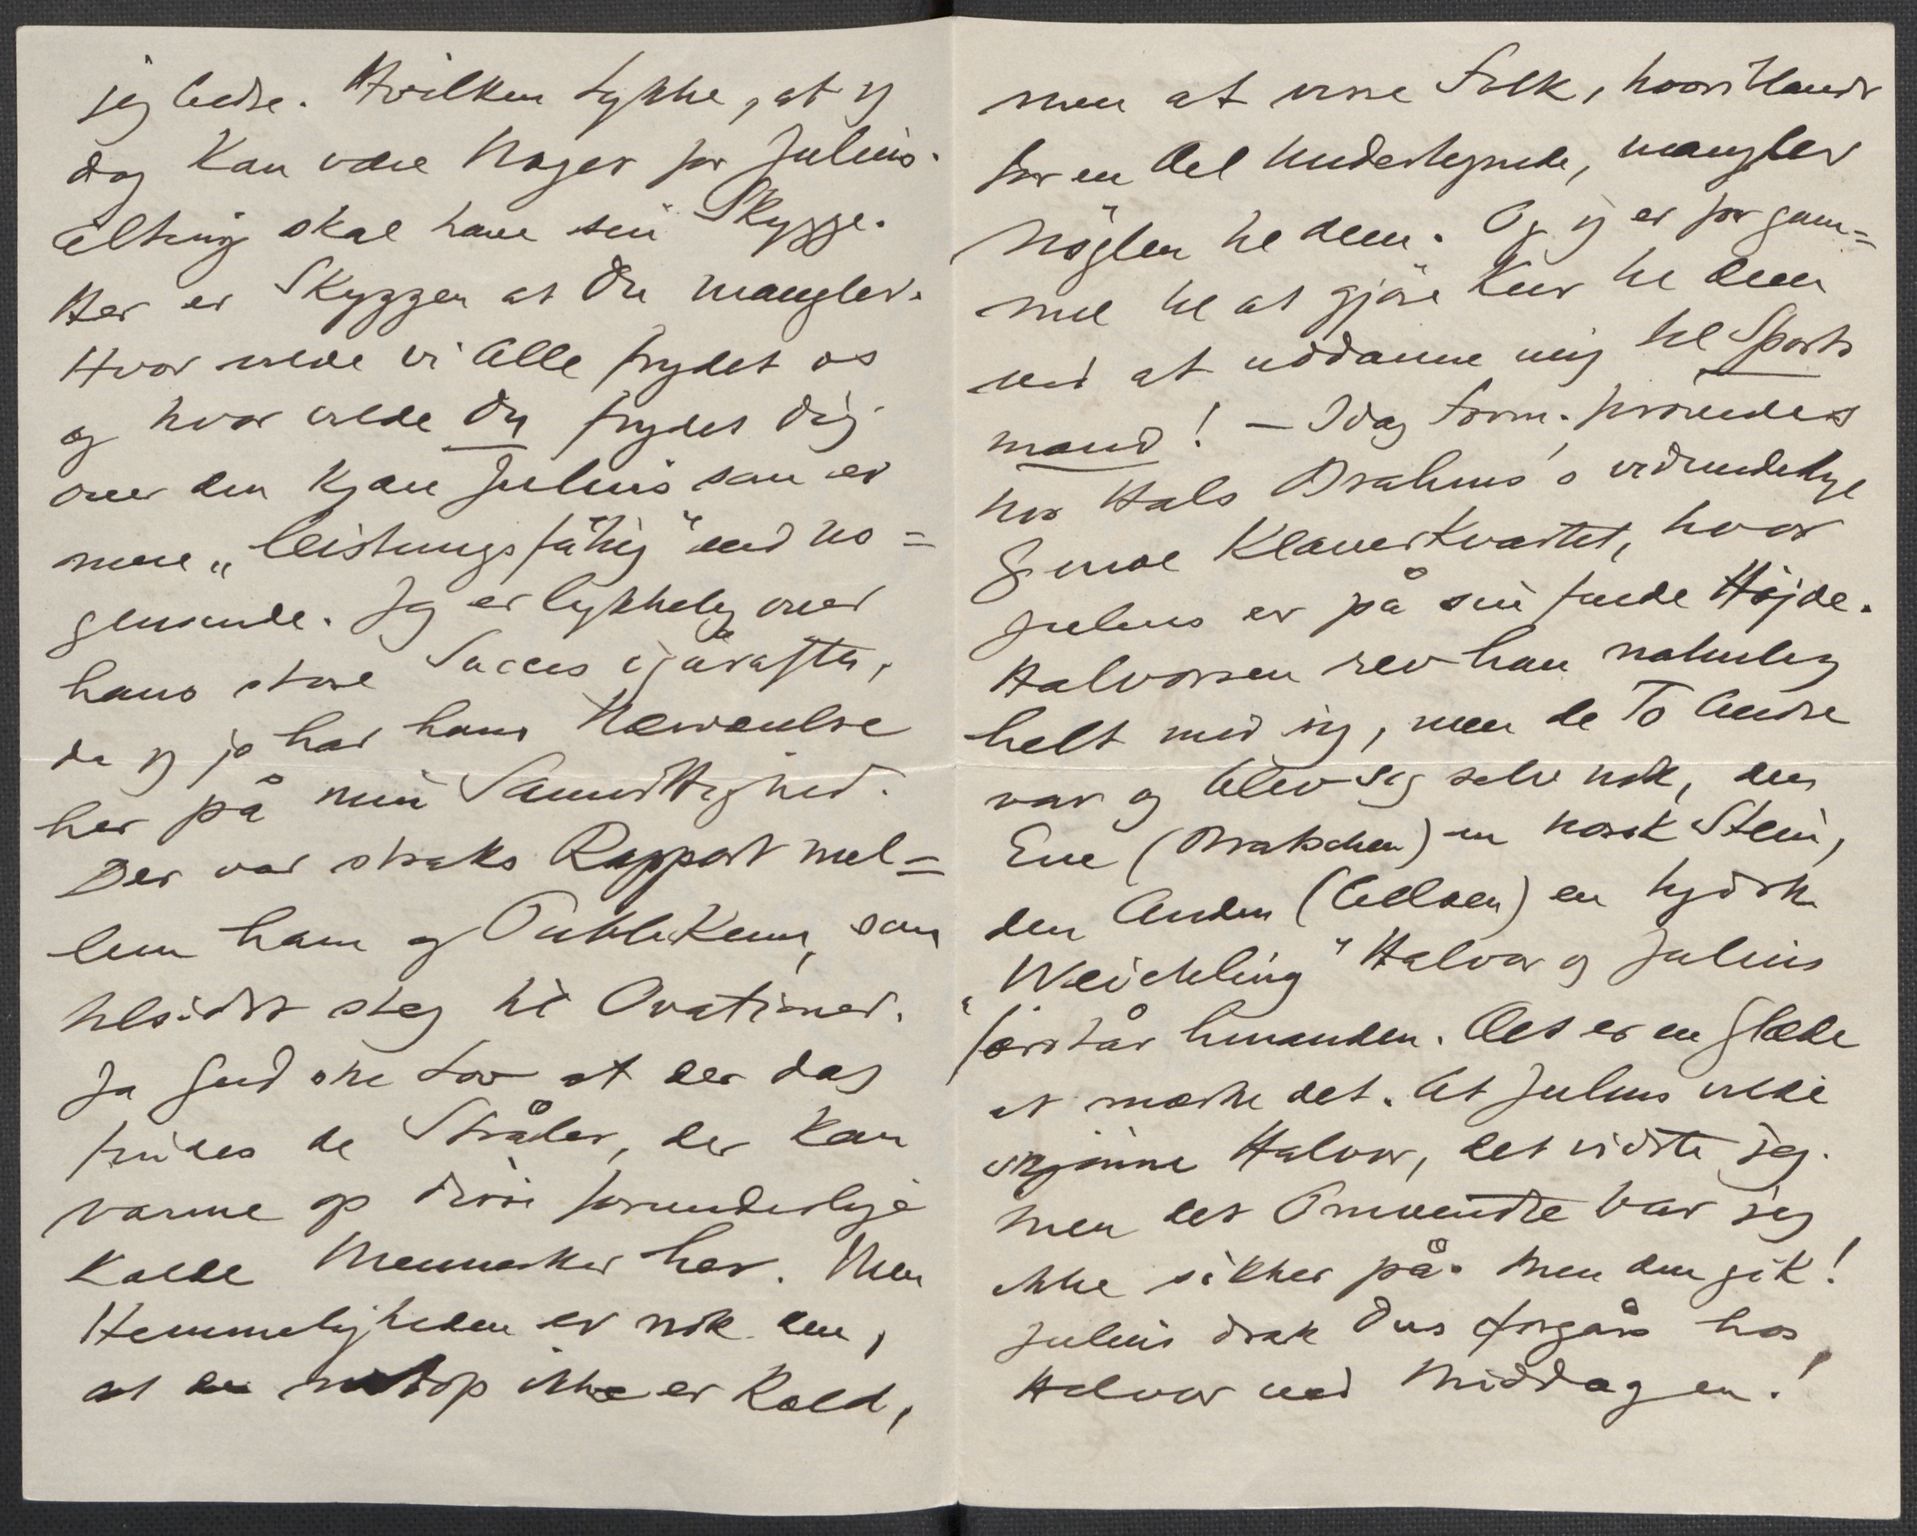 jeg bedre. Hvilken Lykke, at jeg
dog kan være Noget for Julius.
Alting skal have sin Skygge.
Her er Skyggen at Du mangler.
Hvor vilde vi Alle frydet os
og hvor vilde Du frydet Dig
over den kjære Julius som er
mere „leistungsfähig" end no=
gensinde. Jeg er lykkelig over
hans store Succes igåraftes,
da jeg jo har hans Nærværelse
her på min Samvittighed.
Der var straks Rapport mel=
lem ham og Publikum, som
tilsidst steg til Ovationer.
Ja Gud ske Lov at der dog
findes de Stråler, der kan
varme op disse forunderlige
kolde Mennesker her. Men
Hemmeligheden er nok den,
at de netop ikke er kold,
men at visse Folk, hvoriblandt
for en Del Undertegnede, mangler
Nøglen til dem. Og jeg er for gam=
mel til at gjøre Kur til dem
ved at uddanne mig til Sports
mand! – Idag Form. prøvedes
hos Hals Brahms's vidunderlige
G moll Klaverkvartet, hvor
Julius er på sin fulde Højde.
Halvorsen rev han naturlig
helt med sig, men de To Andre
var og blev sig selv nok, den
Ene (Bratschen) en norsk Stein,
den Anden (Celloen) en tydsk
„Weichling" Halvor og Julius
forstår hinanden. Det er en Glæde
at mærke det. At Julius vilde
skjønne Halvor, det vidste jeg.
Men det Omvendte var jeg
ikke sikker på. Men den gik!
Julius drak Dus forgårs hos
Halvor ved Middagen!